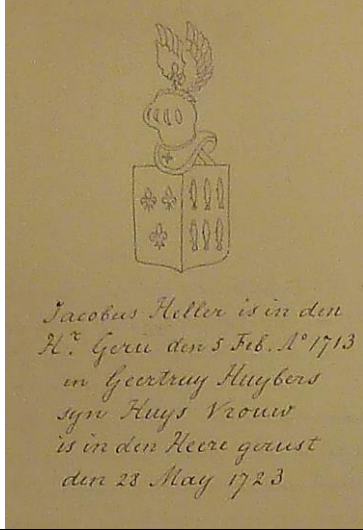 Jacobus Heller is in den
Hr. Geru den 5 Feb. Ao 1713
en Geertruy Huybers
syn Huys Vrouw
is in den Heere gerust
den 28 May 1723